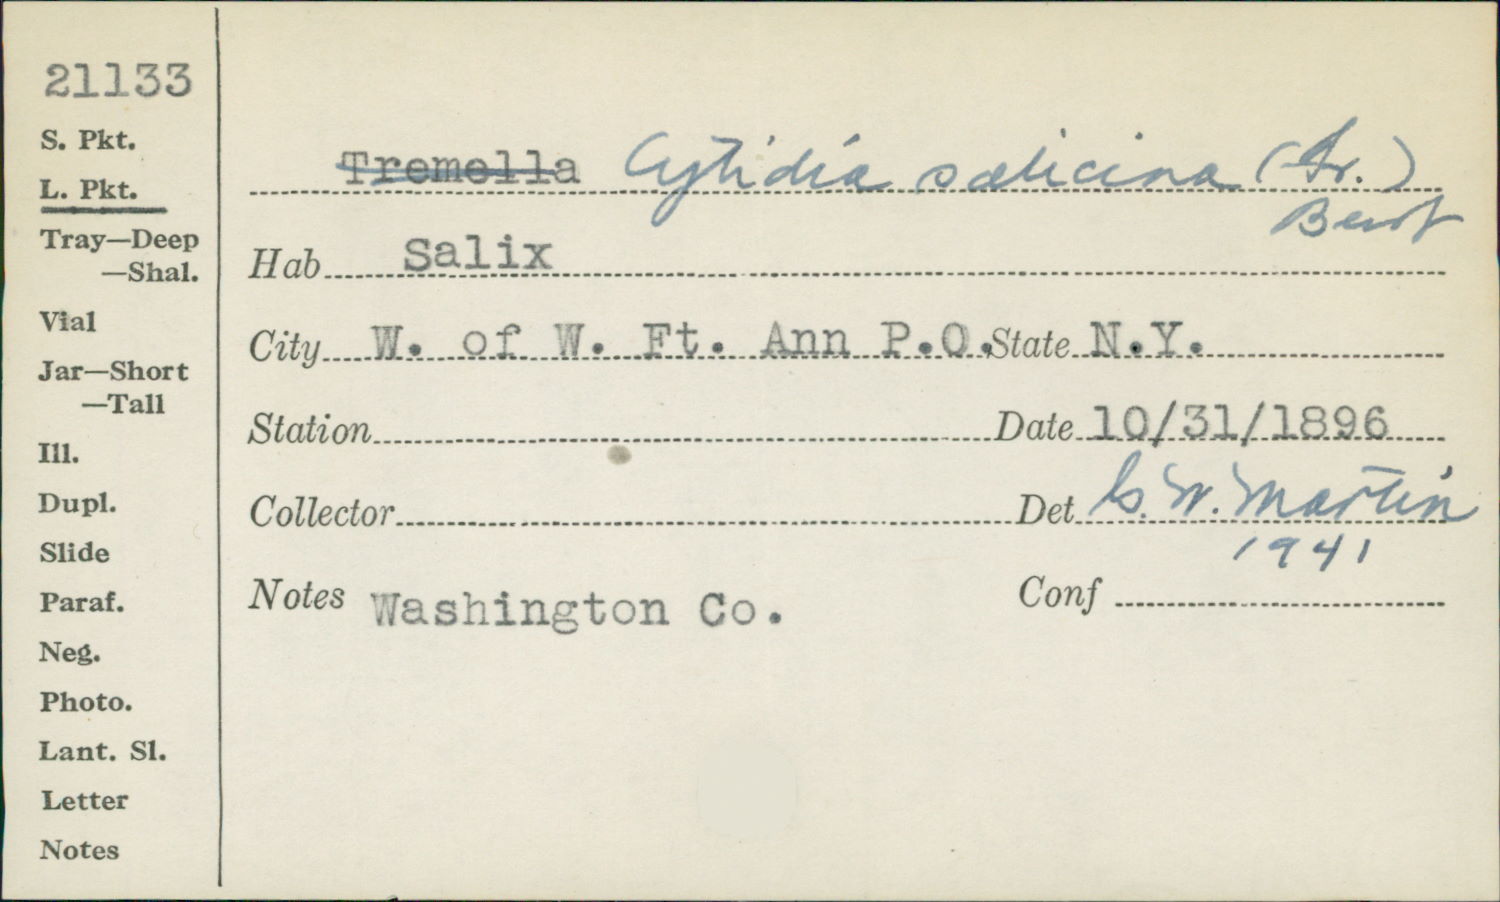 21133
S. Pkt.
L. Pkt.
Tray—Deep
—Shal.
Vial
Jar—Short
—Tall
Ill.
Dupl.
Slide
Paraf.
Neg.
Photo.
Lant. Sl.
Letter
Notes
Tremella Cytidia salicina (Fr.)
Burt
Hab Salix
City W. of W. Ft. Ann P.O. State N.Y.
Station Date 10/31/1896
Collector Det G. W. Martin
1941
Notes Washington Co. Conf